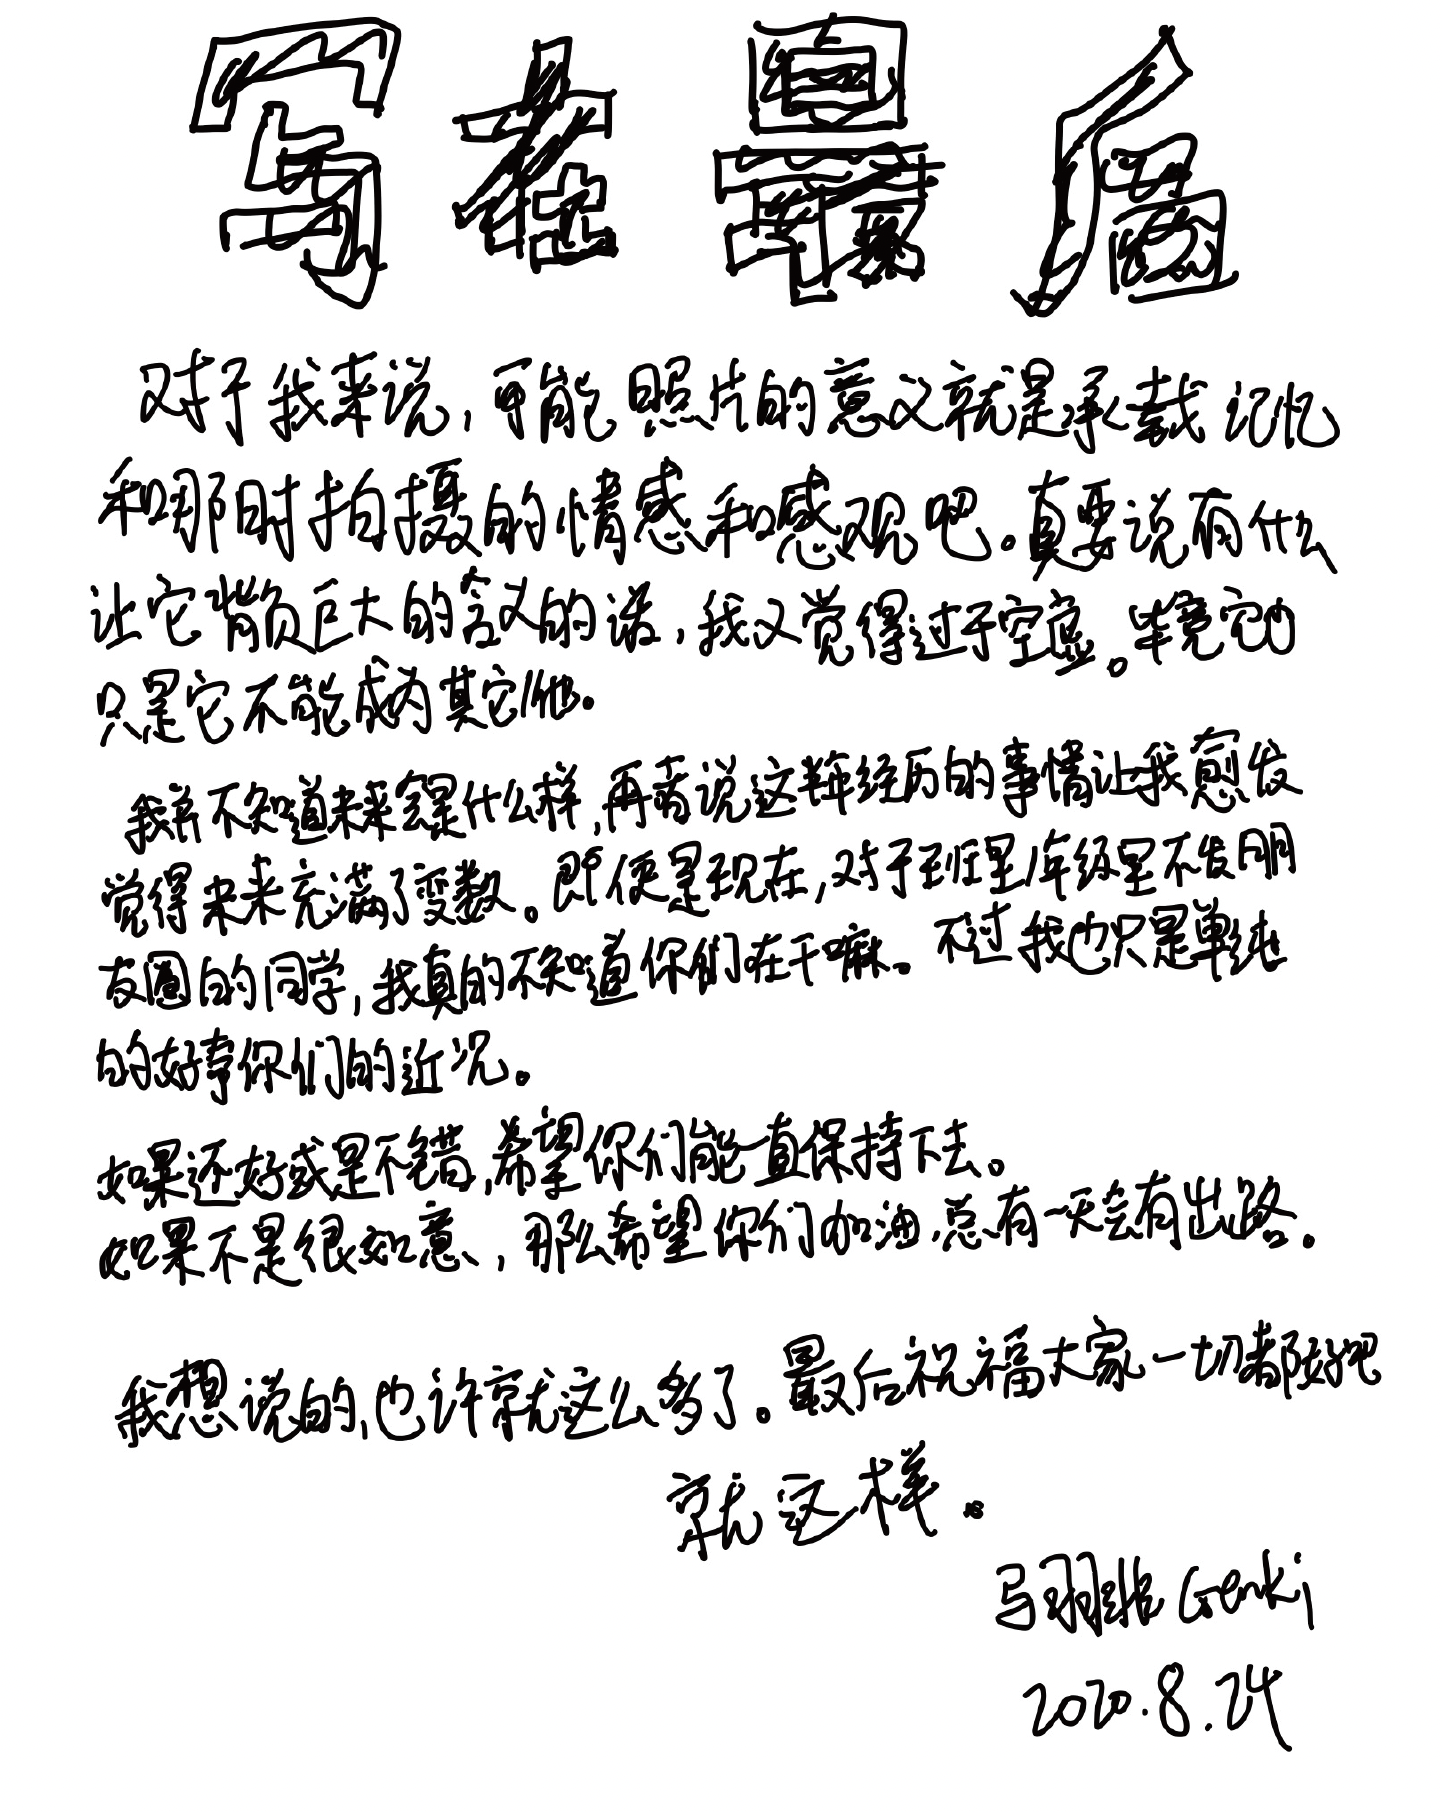 写在最后
对于我来说，可能照片的意义就是承载记忆
和那时拍摄的情感和感观吧。真要说有什么
让它背负巨大的含义的话，我又觉得过于空虚。毕竟它也
只是它不能成为其它/他。
我并不知道未来会是什么样，再者说这样经历的事情让我愈发
觉得未来充满了变数。即便是现在，对于班里/年级里不发朋
友圈的同学，我真的不知道你们在干嘛。不过我也只是单纯
的好奇你们的近况。
如果还好或是不错，希望你们能一直保持下去。
如果不是很如意，那么希望你们加油，总有一天会有出路。
我想说的，也许就这么多了。最后祝福大家一切都好吧
就这样。
马翙非 Genki
2020.8.24